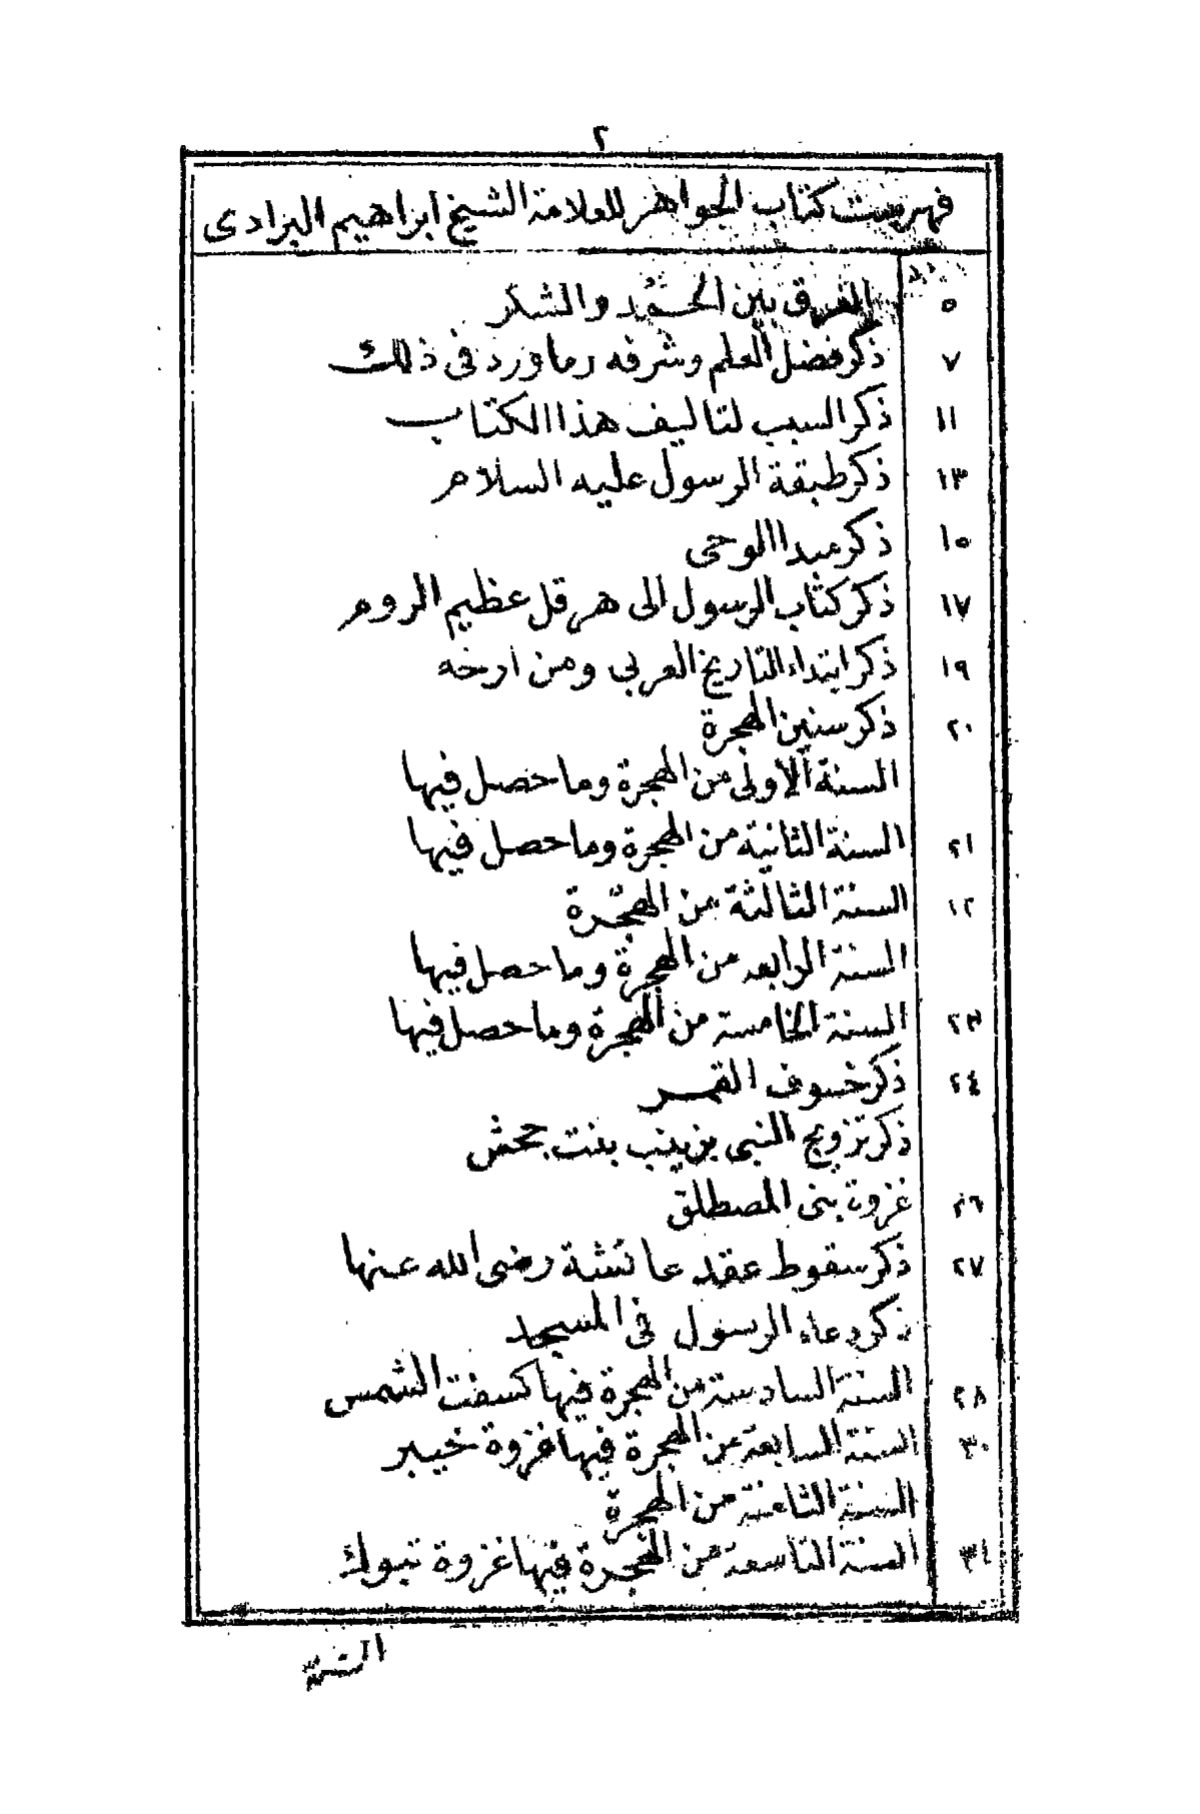 ٢
فهرست كتاب الجواهر للعلامة الشيخ ابراهيم البرادى
٥ الفرق بين الحمد والشكر
٧ ذكر فضل العلم وشرفه وما ورد فى ذلك
١١ ذكر السبب لتاليف هذا الكتاب
١٣ ذكر طبقة الرسول عليه السلام
١٥ ذكر مبدا الوحى
١٧ ذكر كتاب الرسول الى هرقل عظيم الروم
١٩ ذكر ابتداء التاريخ العربى ومن ارخه
٢٠ ذكر سنين الهجرة
السنة الاولى من الهجرة وما حصل فيها
٢١ السنة الثانية من الهجرة وما حصل فيها
١٢ السنة الثالثة من الهجرة
السنة الرابعه من الهجرة وما حصل فيها
٢٣ السنة الخامسة من الهجرة وما حصل فيها
٢٤ ذكر خسوف القمر
ذكر تزويج النبى بزينب بنت جحش
٢٦ غزوة بنى المصطلق
٢٧ ذكر سقوط عقد عائشة رضى الله عنها
ذكر دعاء الرسول فى المسجد
٢٨ السنة السادسة من الهجرة فيها كسفت الشمس
٣٠ السنة السابعة من الهجرة فيها غزوة خيبر
السنة الثامنة من الهجرة
٣١ السنة التاسعة من الهجرة فيها غزوة تبوك
السنة